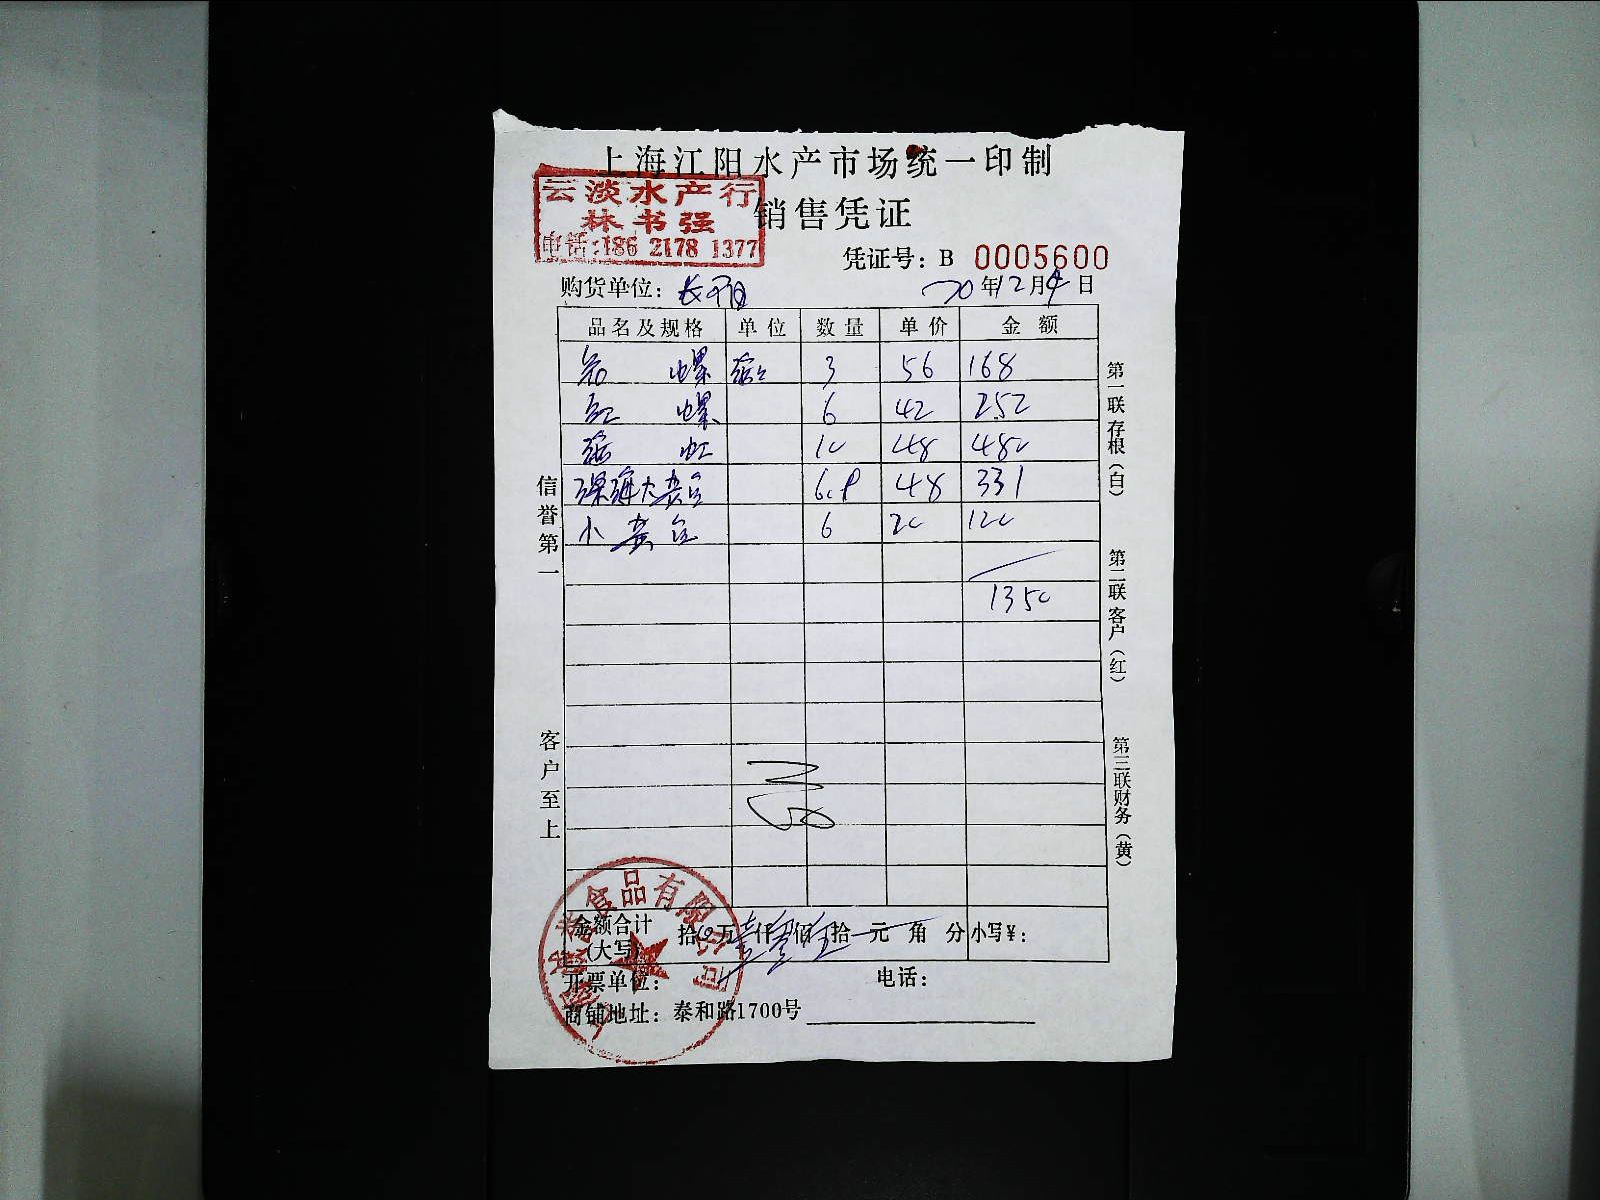 上海江阳水产市场统一印制
云淡水产行
林书强
电话:186 2178 1377
销售凭证
凭证号：B 0005600
购货单位：
20年12月9日
品名及规格 单位 数量 单价 金额
螺 3 56 168
红 螺 6 42 252
虾 10 48 480
深海大黄鱼 6.9 48 331
小黄鱼 6 20 120
1350
信誉第一
客户至上
第一联存根（白）
第二联客户（红）
第三联财务（黄）
金额合计（大写） 拾 万 壹 仟 叁 佰 伍 拾 元 角 分 小写¥：
开票单位： 电话：
商铺地址：泰和路1700号
食品有限公司